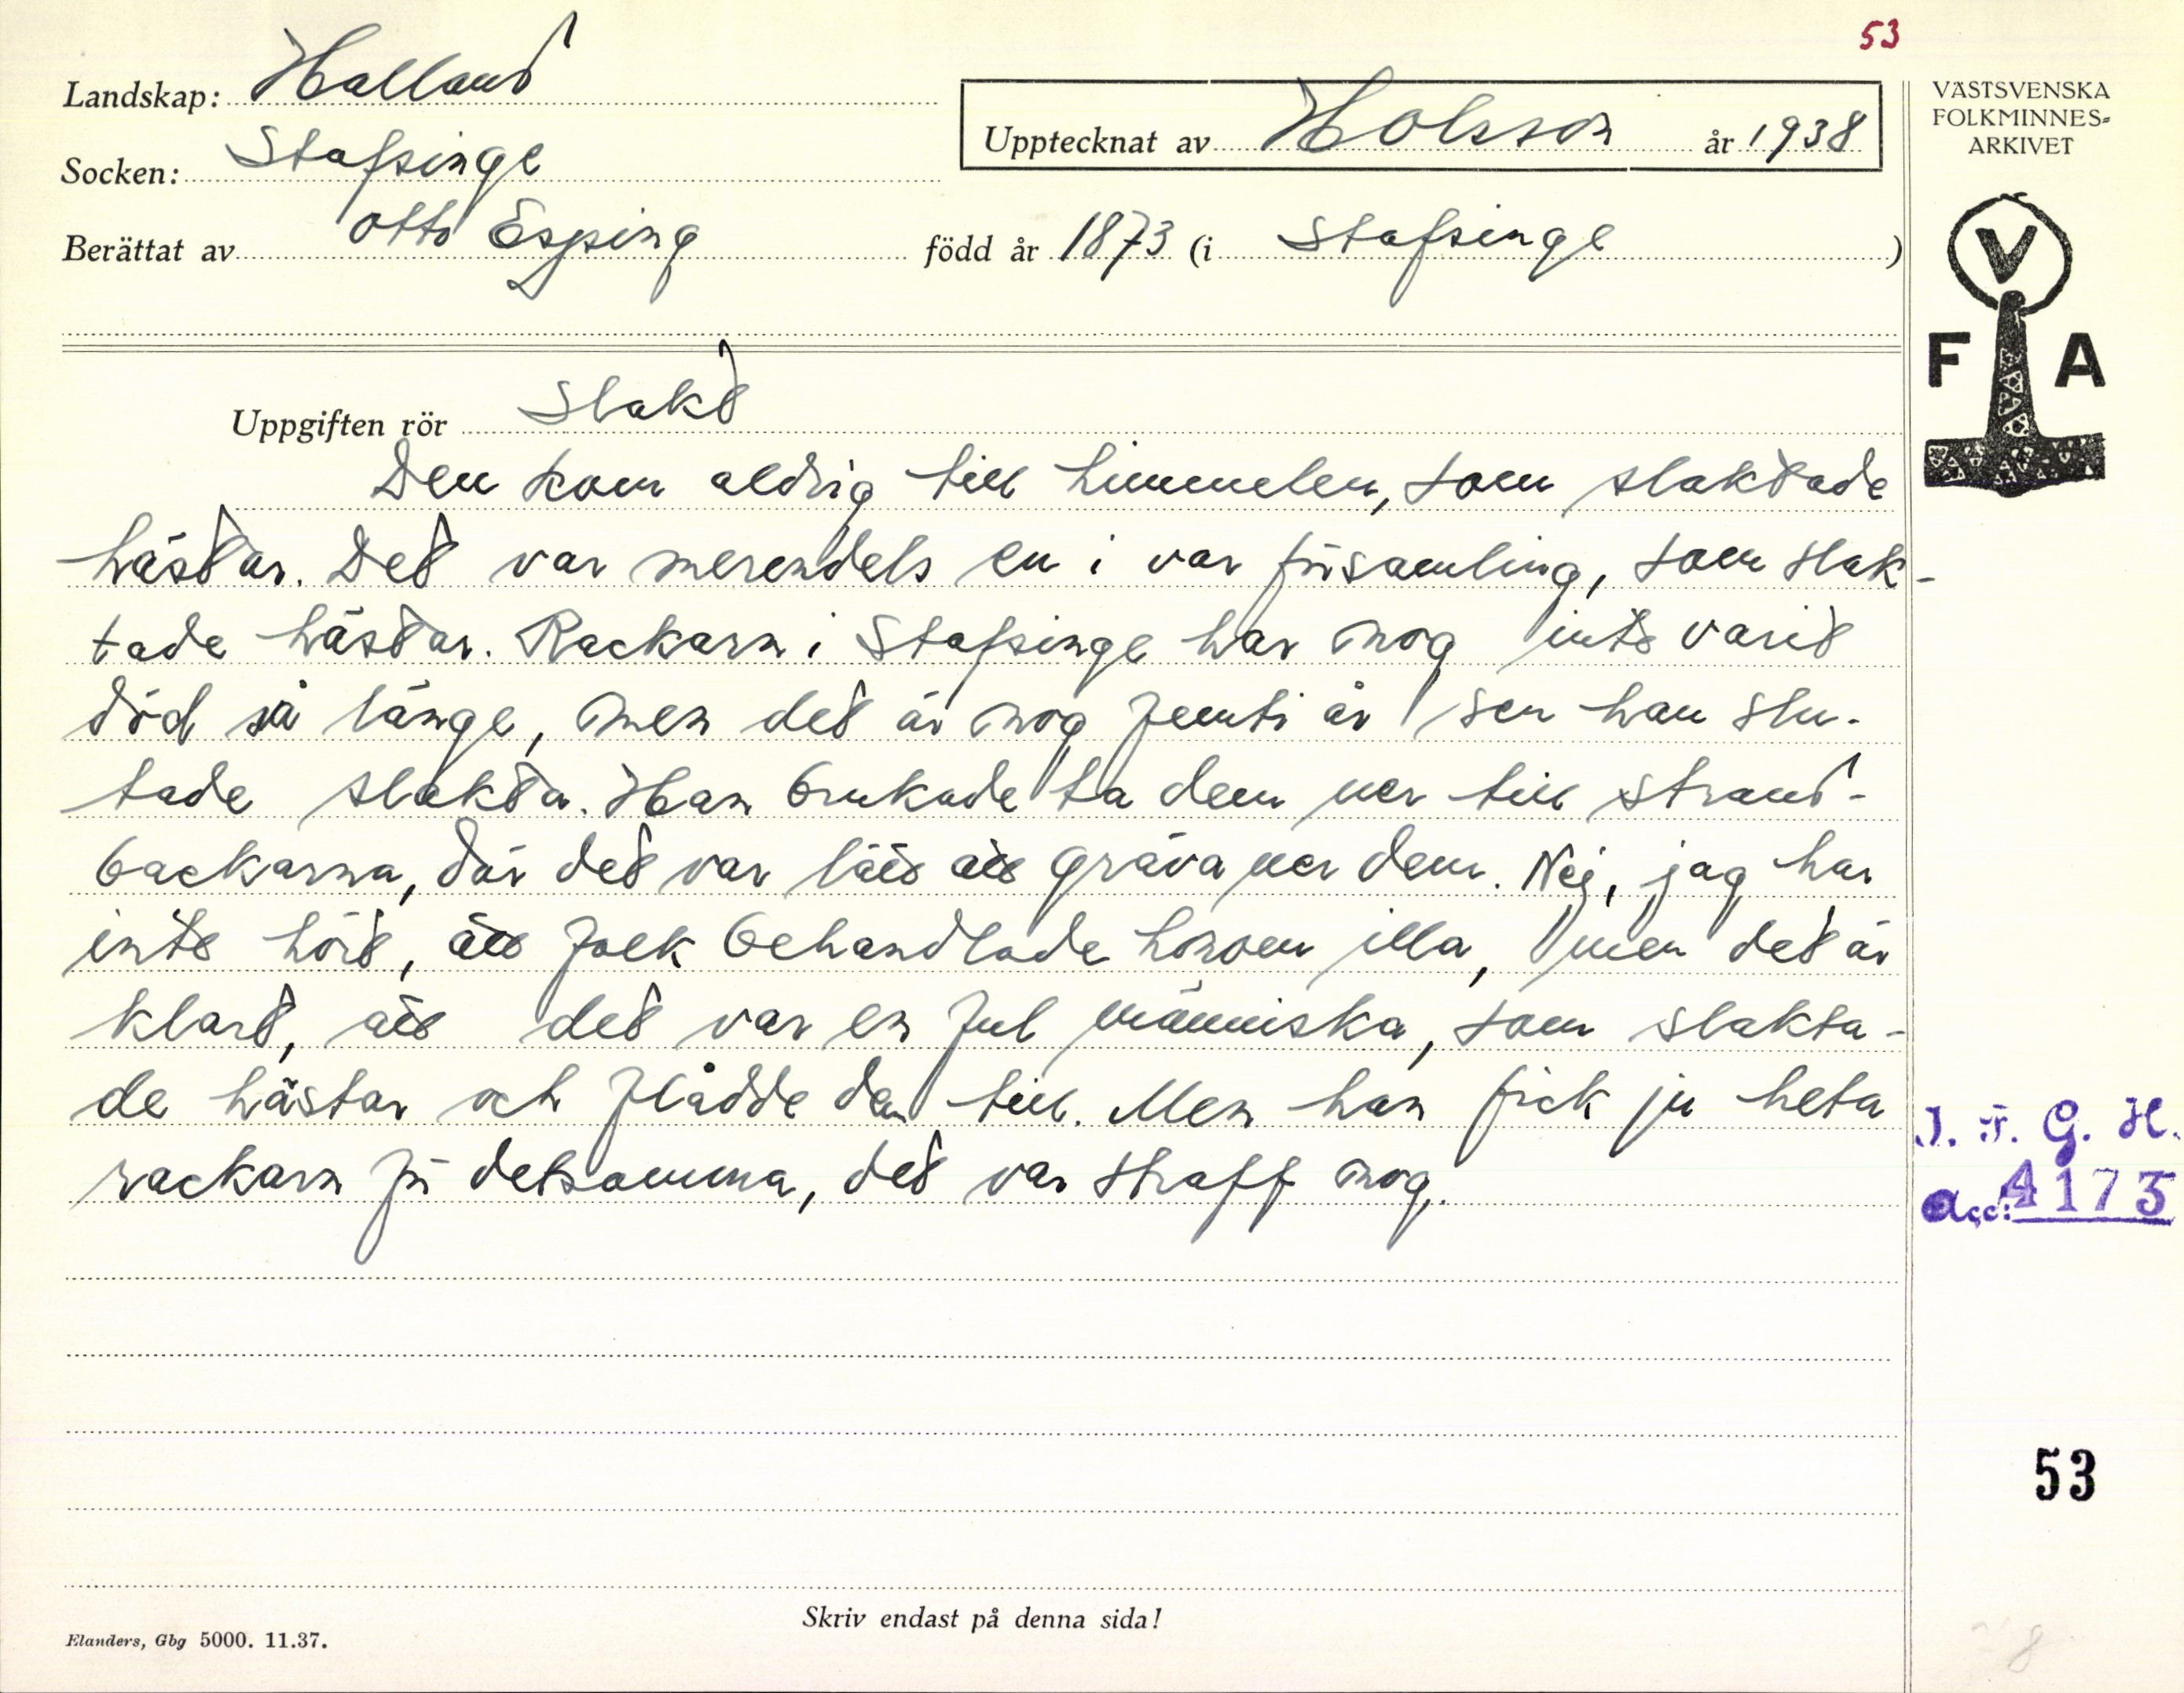 53
Landskap: Halland
Upptecknat av HOlsson år 1938
VÄSTSVENSKA
FOLKMINNES-
ARKIVET
Socken: Stafsinge
Berättat av Otto Esping född år 1873 (i Stafsinge)
V
F A
Uppgiften rör Slakt
Den kom aldrig till himmelen, som slaktade
hästar. Det var merendels en i var församling, som slak-
tade hästar. Rackarn i Stafsinge har nog inte varit
död så länge, men det är nog femti år sen han slu-
tade slakta. Han brukade ta dem ner till strand-
backarna, där det var lätt att gräva ner dem. Nej, jag har
inte hört, att folk behandlade honom illa, men det är
klart, att det var en ful människa, som slakta-
de hästar och flådde dem till. Men han fick ju heta
rackarn för detsamma, det var straff nog.
I. F. G. H.
Acc: 4173
53
Skriv endast på denna sida!
Elanders, Gbg 5000. 11.37.
8